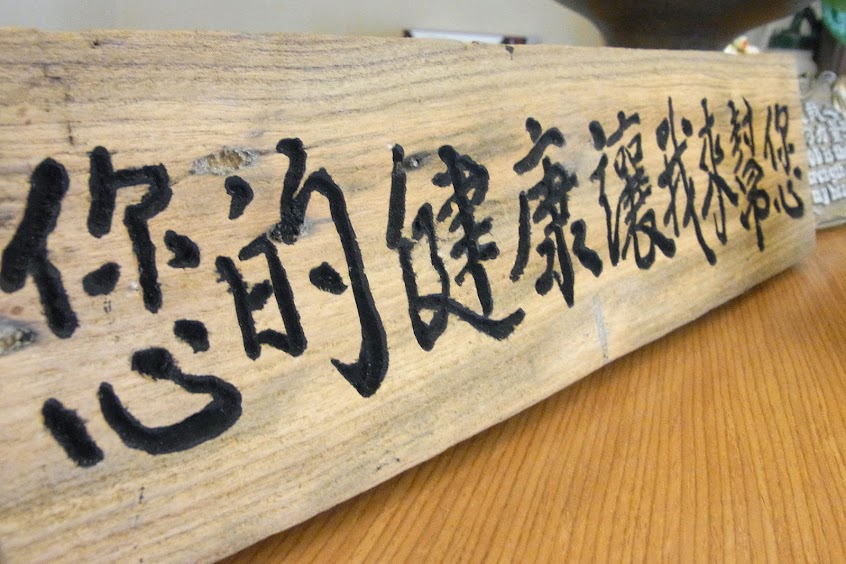 您的健康讓我來幫您